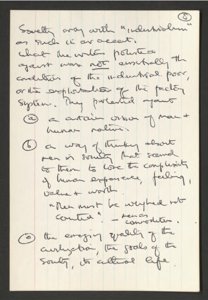 ⑤
Society only with "industrialism"
as such is or accent.
What the writers protested
against was not essentially the
condition of the industrial poor,
or the exploitation of the factory
system. They protested against
ⓐ a certain vision of man &
human nature.
ⓑ a way of thinking about
men in society that seemed
to them to lose the complexity
of human experience, feeling,
value & worth.
"Men must be weighed not
counted" - men as
commodities.
ⓒ the emerging quality of the
civilization, the goals of the
society, its cultural life.